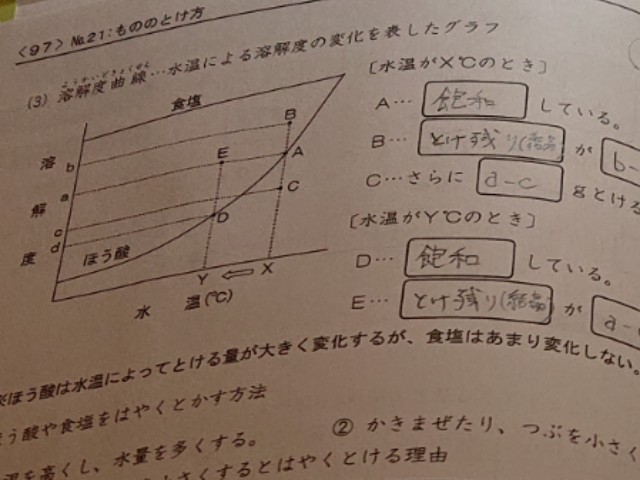 〈97〉№21:もののとけ方
(3) 溶解度曲線…水温による溶解度の変化を表したグラフ
ようかいどきょくせん
食塩
溶解度
b
a
c
d
B
E
A
C
D
ほう酸
Y
X
水 温(℃)
[水温がX℃のとき]
A… 飽和 している。
B… とけ残り(結晶) が b-
C…さらに a-c gとける
[水温がY℃のとき]
D… 飽和 している。
E… とけ残り(結晶) が a-
ほう酸は水温によってとける量が大きく変化するが、食塩はあまり変化しない。
う酸や食塩をはやくとかす方法
を高くし、水量を多くする。
② かきまぜたり、つぶを小さく
さくするとはやくとける理由